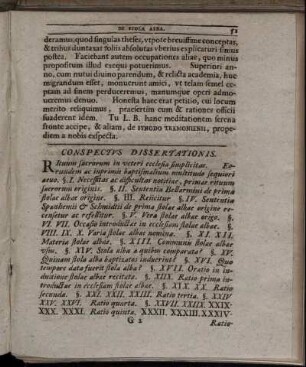 DE STOLA ALBA. 51
deramus; quod singulas theses, utpote brevissime conceptas,
& tribus duntaxat foliis absolutas uberius explicaturi simus
postea. Faciebant autem occupationes aliæ, quo minus
propositum istud exequi potuerimus. Superiori anno,
cum nutui divino parendum, & relicta academia, huc
migrandum esset, monuerunt amici, ut telam semel ceptam
ad finem perduceremus, meumque operi admoveremus
denuo. Honesta hæc erat petitio, cui locum
merito relinquimus, præsertim cum & rationes officii
suaderent idem. Tu L. B. hanc meditationem serena
fronte accipe, & aliam, de STRIDO TREMONENSI, propediem
a nobis exspecta.
CONSPECTUS DISSERTATIONIS.
Rituum sacrorum in veteri ecclesia simplicitas.
eorundem ac inprimis baptismalium multitudo sequiori
ævo. §. I. Necessitas ac difficultas notitiæ, primæ rituum
sacrorum originis. §. II. Sententia Bellarmini de prima
stolæ albæ origine. §. III. Reiicitur. §. IV. Sententia
Spanhemii & Schmidtii de prima stolæ albæ origine recensetur
ac refellitur. §. V. Vera stolæ albæ origo. §.
VI. VII. Occasio introductæ in ecclesiam stolæ albæ. §.
VIII. IX. X. Varia stolæ albæ nomina. §. XI. XII.
Materia stolæ albæ. §. XIII. Communis stolæ albæ
usus. §. XIV. Stola alba a quibus comparata? §. XV.
Quinam stola alba baptizatos induerint? §. XVI. Quo
tempore data fuerit stola alba? §. XVII. Oratio in induitione
stolæ albæ recitata. §. XVIII. Ratio prima introductæ
in ecclesiam stolæ albæ. §. XIX. XX. Ratio
secunda. §. XXI. XXII. XXIII. Ratio tertia. §. XXIV
XXV. XXVI. Ratio quarta. §. XXVII. XXIIX. XXIX.
XXX. XXXI. Ratio quinta. XXXII. XXXIII. XXXIV.
G 2 Ratio-